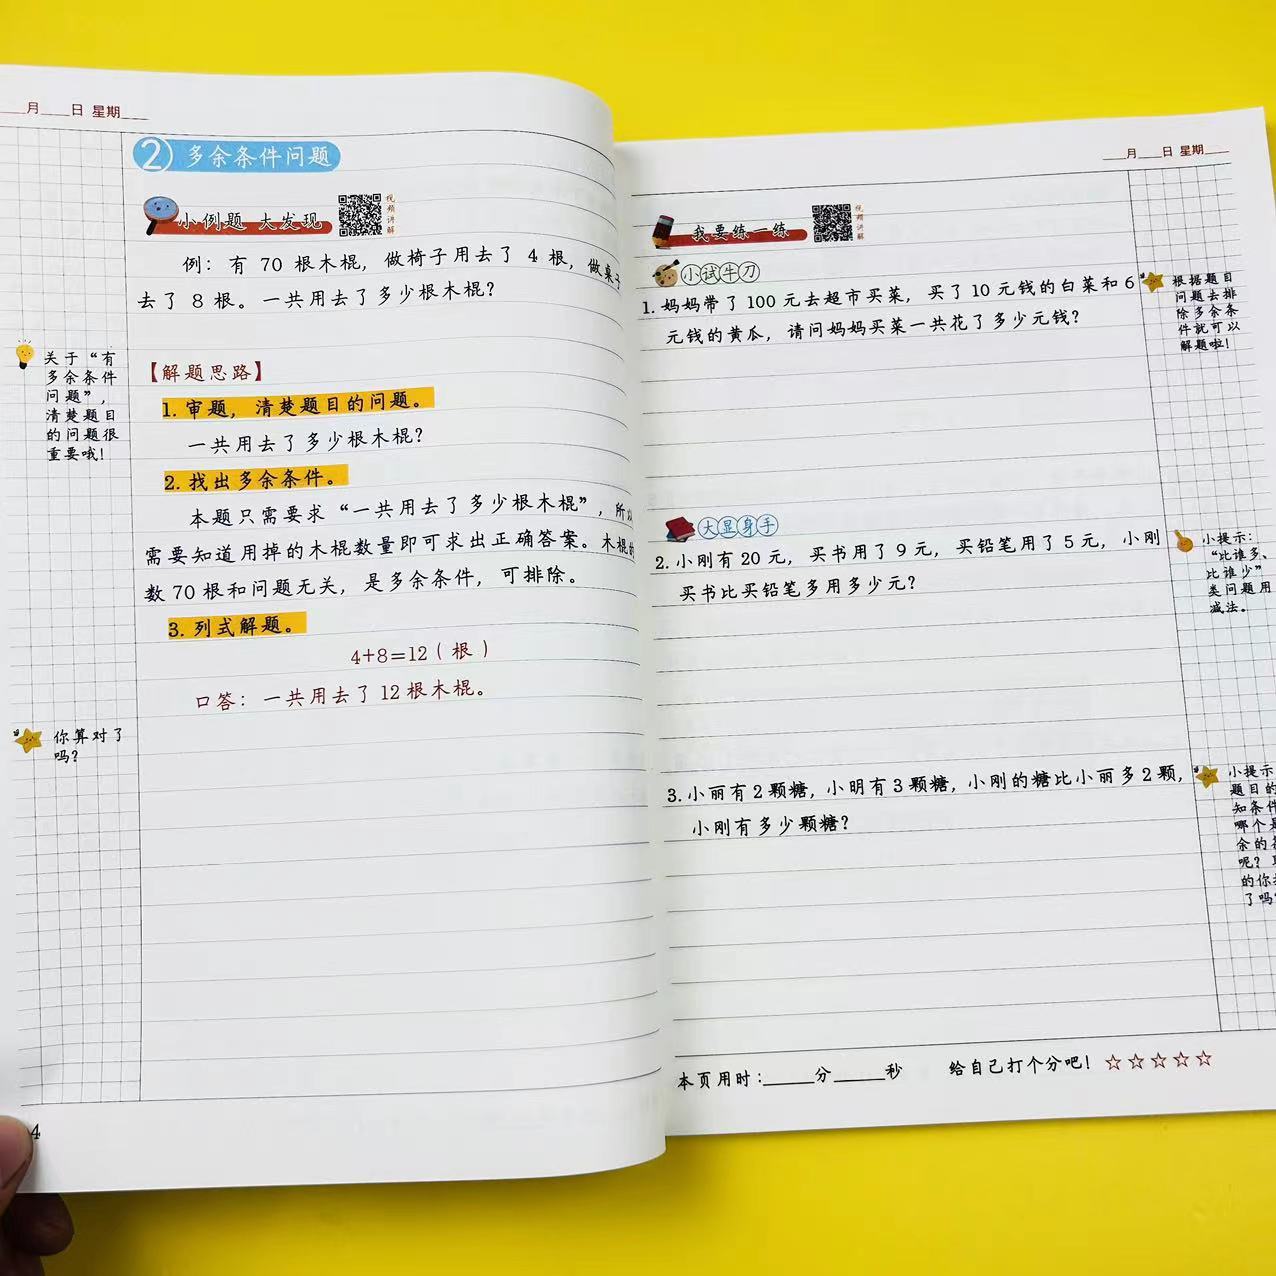 月 日 星期
2 多余条件问题
小例题 大发现
视频讲解
例：有 70 根木棍，做椅子用去了 4 根，做桌子
去了 8 根。一共用去了多少根木棍？
关于“有
多余条件
问题”，
清楚题目
的问题很
重要哦！
【解题思路】
1. 审题，清楚题目的问题。
一共用去了多少根木棍？
2. 找出多余条件。
本题只需要求“一共用去了多少根木棍”，所以
需要知道用掉的木棍数量即可求出正确答案。木棍的
数70根和问题无关，是多余条件，可排除。
3. 列式解题。
4+8=12（根）
口答：一共用去了12根木棍。
你算对了
吗？
4
月 日 星期
我要练一练
视频讲解
小试牛刀
1. 妈妈带了100元去超市买菜，买了10元钱的白菜和6
元钱的黄瓜，请问妈妈买菜一共花了多少元钱？
根据题目
问题去排
除多余条
件就可以
解题啦！
大显身手
2. 小刚有20元，买书用了9元，买铅笔用了5元，小刚
买书比买铅笔多用多少元？
小提示：
“比谁多、
比谁少”
类问题用
减法。
3. 小丽有2颗糖，小明有3颗糖，小刚的糖比小丽多2颗，
小刚有多少颗糖？
小提示
题目的
知条件
哪个是
余的条
呢？
的你
了吗
本页用时：____分____秒 给自己打个分吧！☆☆☆☆☆